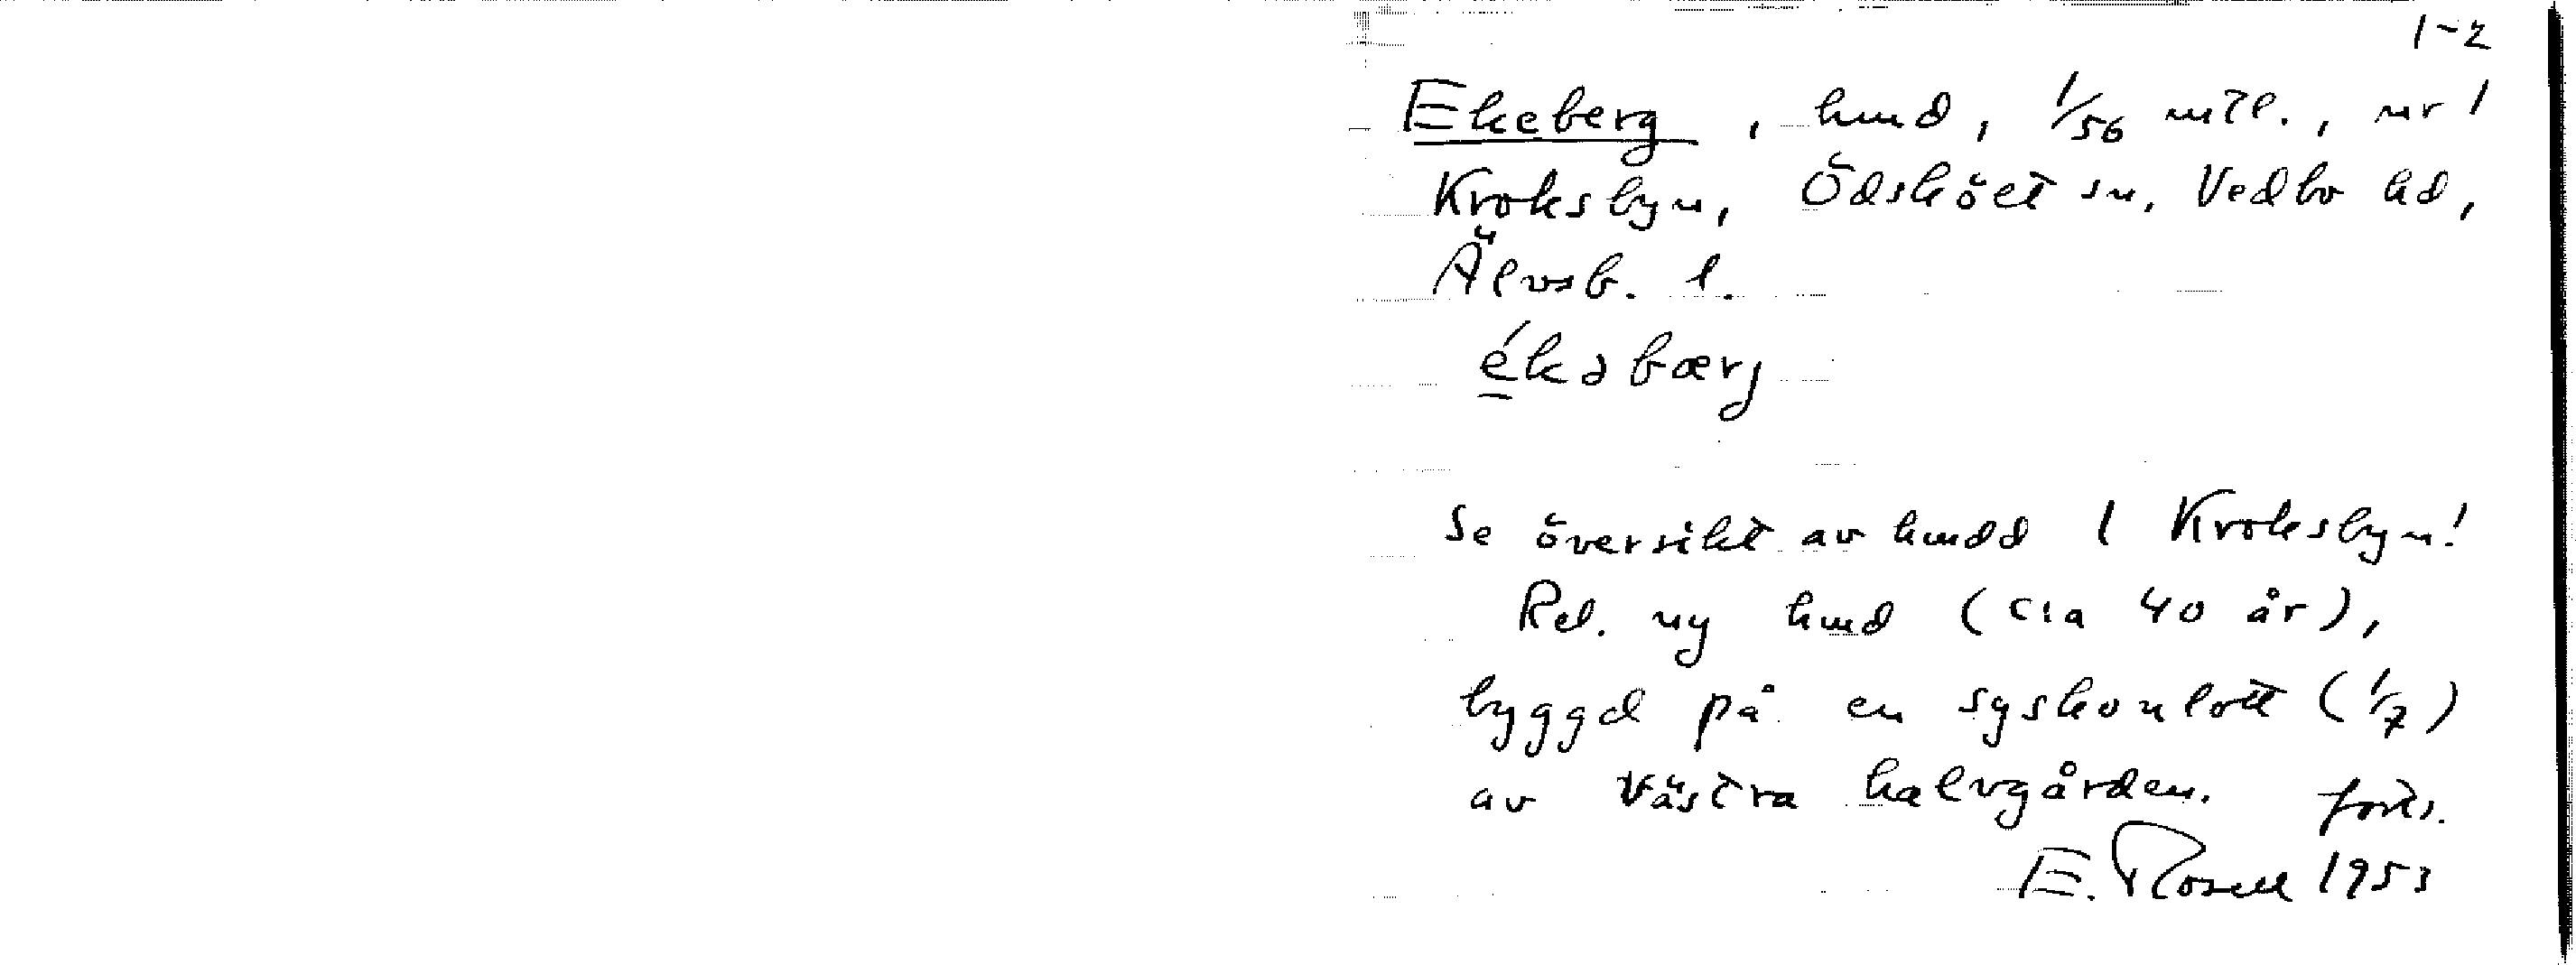 1-2
Ekeberg, hmd, 1/56 mtl., nr 1
Kroksbyn, Ödsköct sn, Vedbo hd,
Älvsb. l.
ékəbærj
Se översikt av hmdd 1 Kroksbyn!
Rel. ny hmd (cia 40 år),
byggd på en syskonlott (1/7)
av Västra halvgården. forts.
E. Rosell 1953